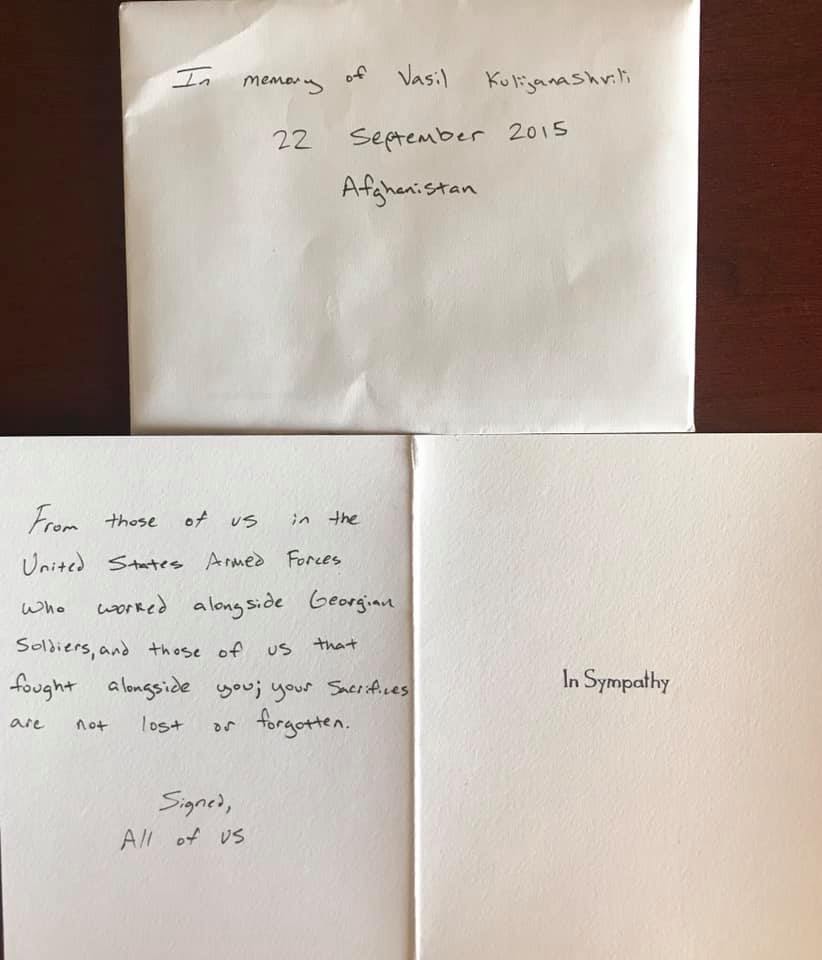 In memory of Vasil Kulijanashvili
22 September 2015
Afghanistan
From those of us in the
United States Armed Forces
who worked alongside Georgian
Soldiers, and those of us that
fought alongside you; your Sacrifices
are not lost or forgotten.
Signed,
All of us
In Sympathy